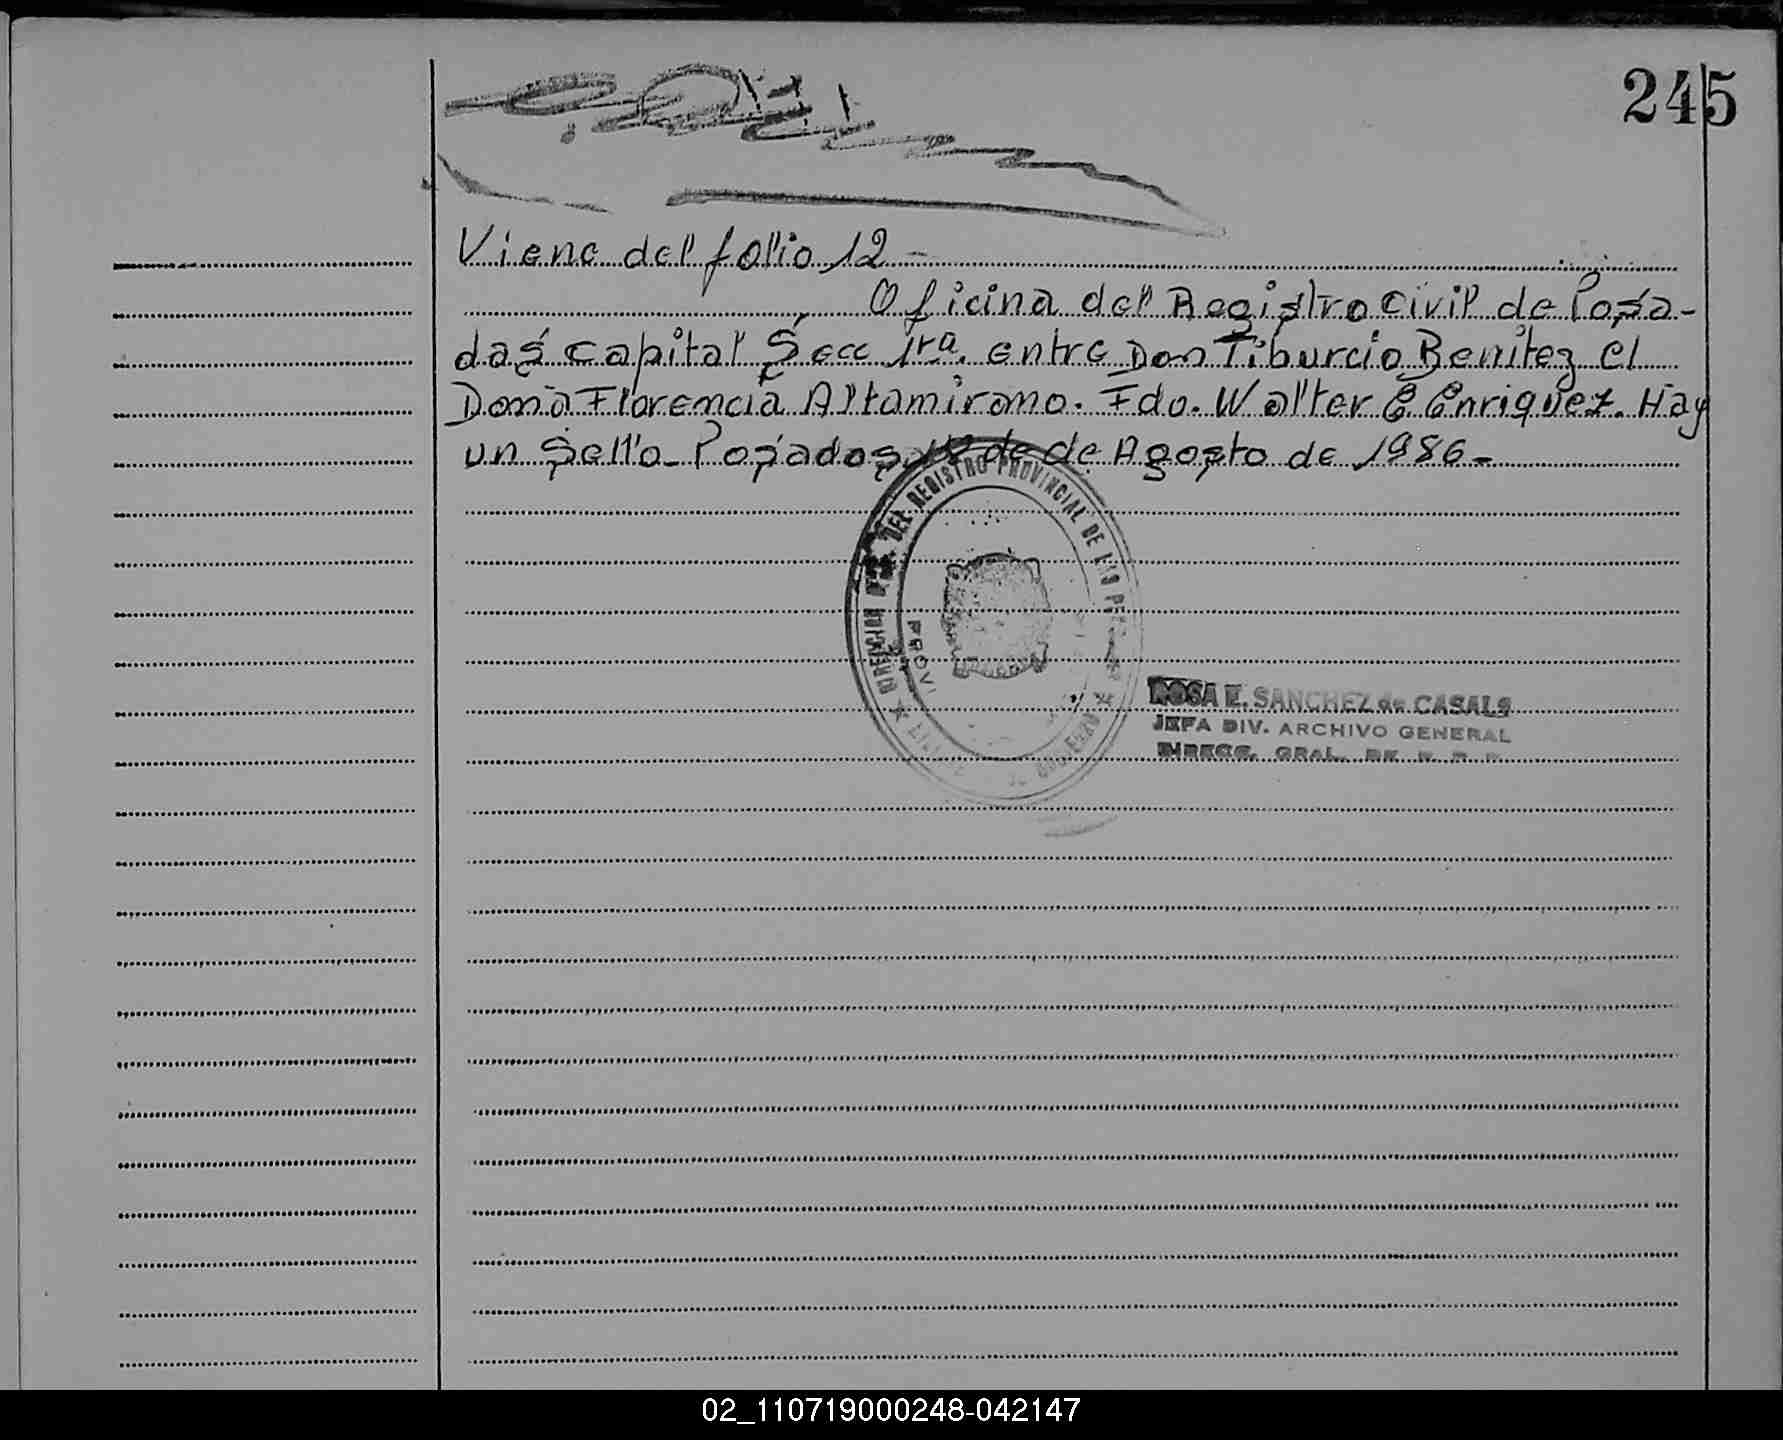 245
Viene del folio 12 -
Oficina del Registro Civil de Posa-
das Capital Secc 1ra. entre Don Tiburcio Benitez c/
Doña Florencia Altamirano. Fdo. Walter E. Enriquez. Hay
un sello - Posadas, de de Agosto de 1986 -
DEL REGISTRO PROVINCIAL DE LAS
PROVI
ROSA E. SANCHEZ de CASALS
JEFA DIV. ARCHIVO GENERAL
DIRECC. GRAL. DE
02_110719000248-042147